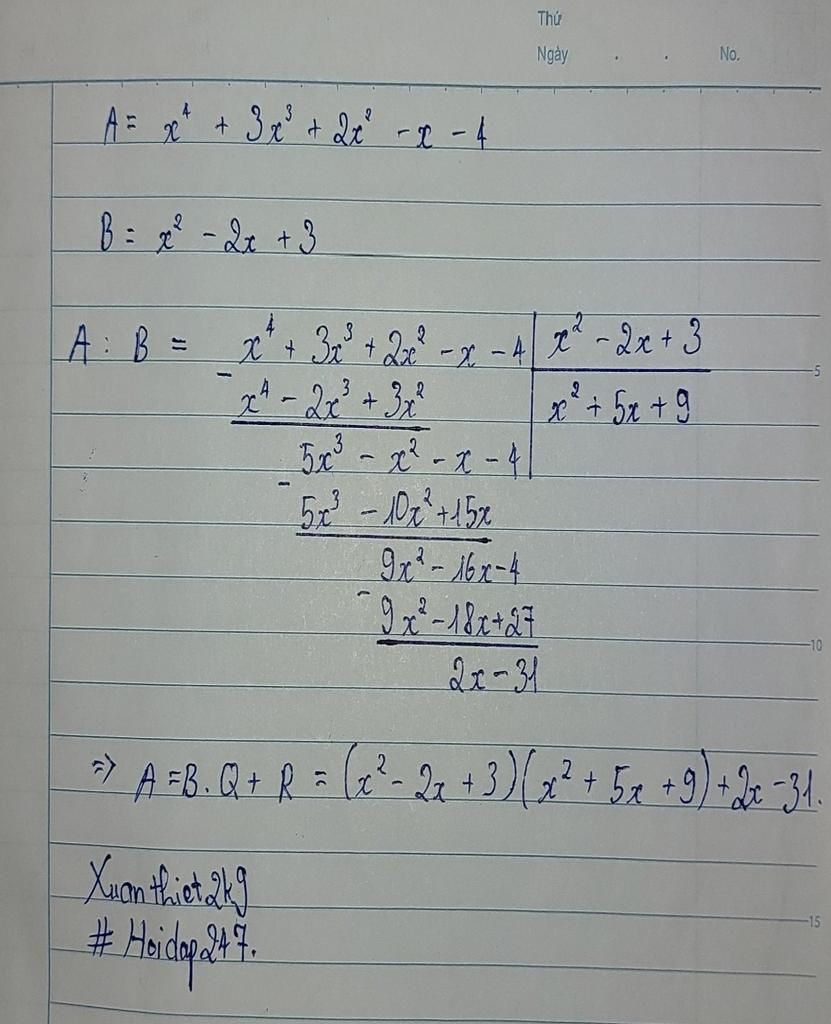 Thứ
Ngày . . No.
A = x⁴ + 3x³ + 2x² - x - 4
B = x² - 2x + 3
A : B = x⁴ + 3x³ + 2x² - x - 4 | x² - 2x + 3
- x⁴ - 2x³ + 3x² | x² + 5x + 9
5x³ - x² - x - 4
- 5x³ - 10x² + 15x
9x² - 16x - 4
- 9x² - 18x + 27
2x - 31
=> A = B . Q + R = (x² - 2x + 3)(x² + 5x + 9) + 2x - 31.
Xuanthiet2k9
# Hoidap247.
5
10
15